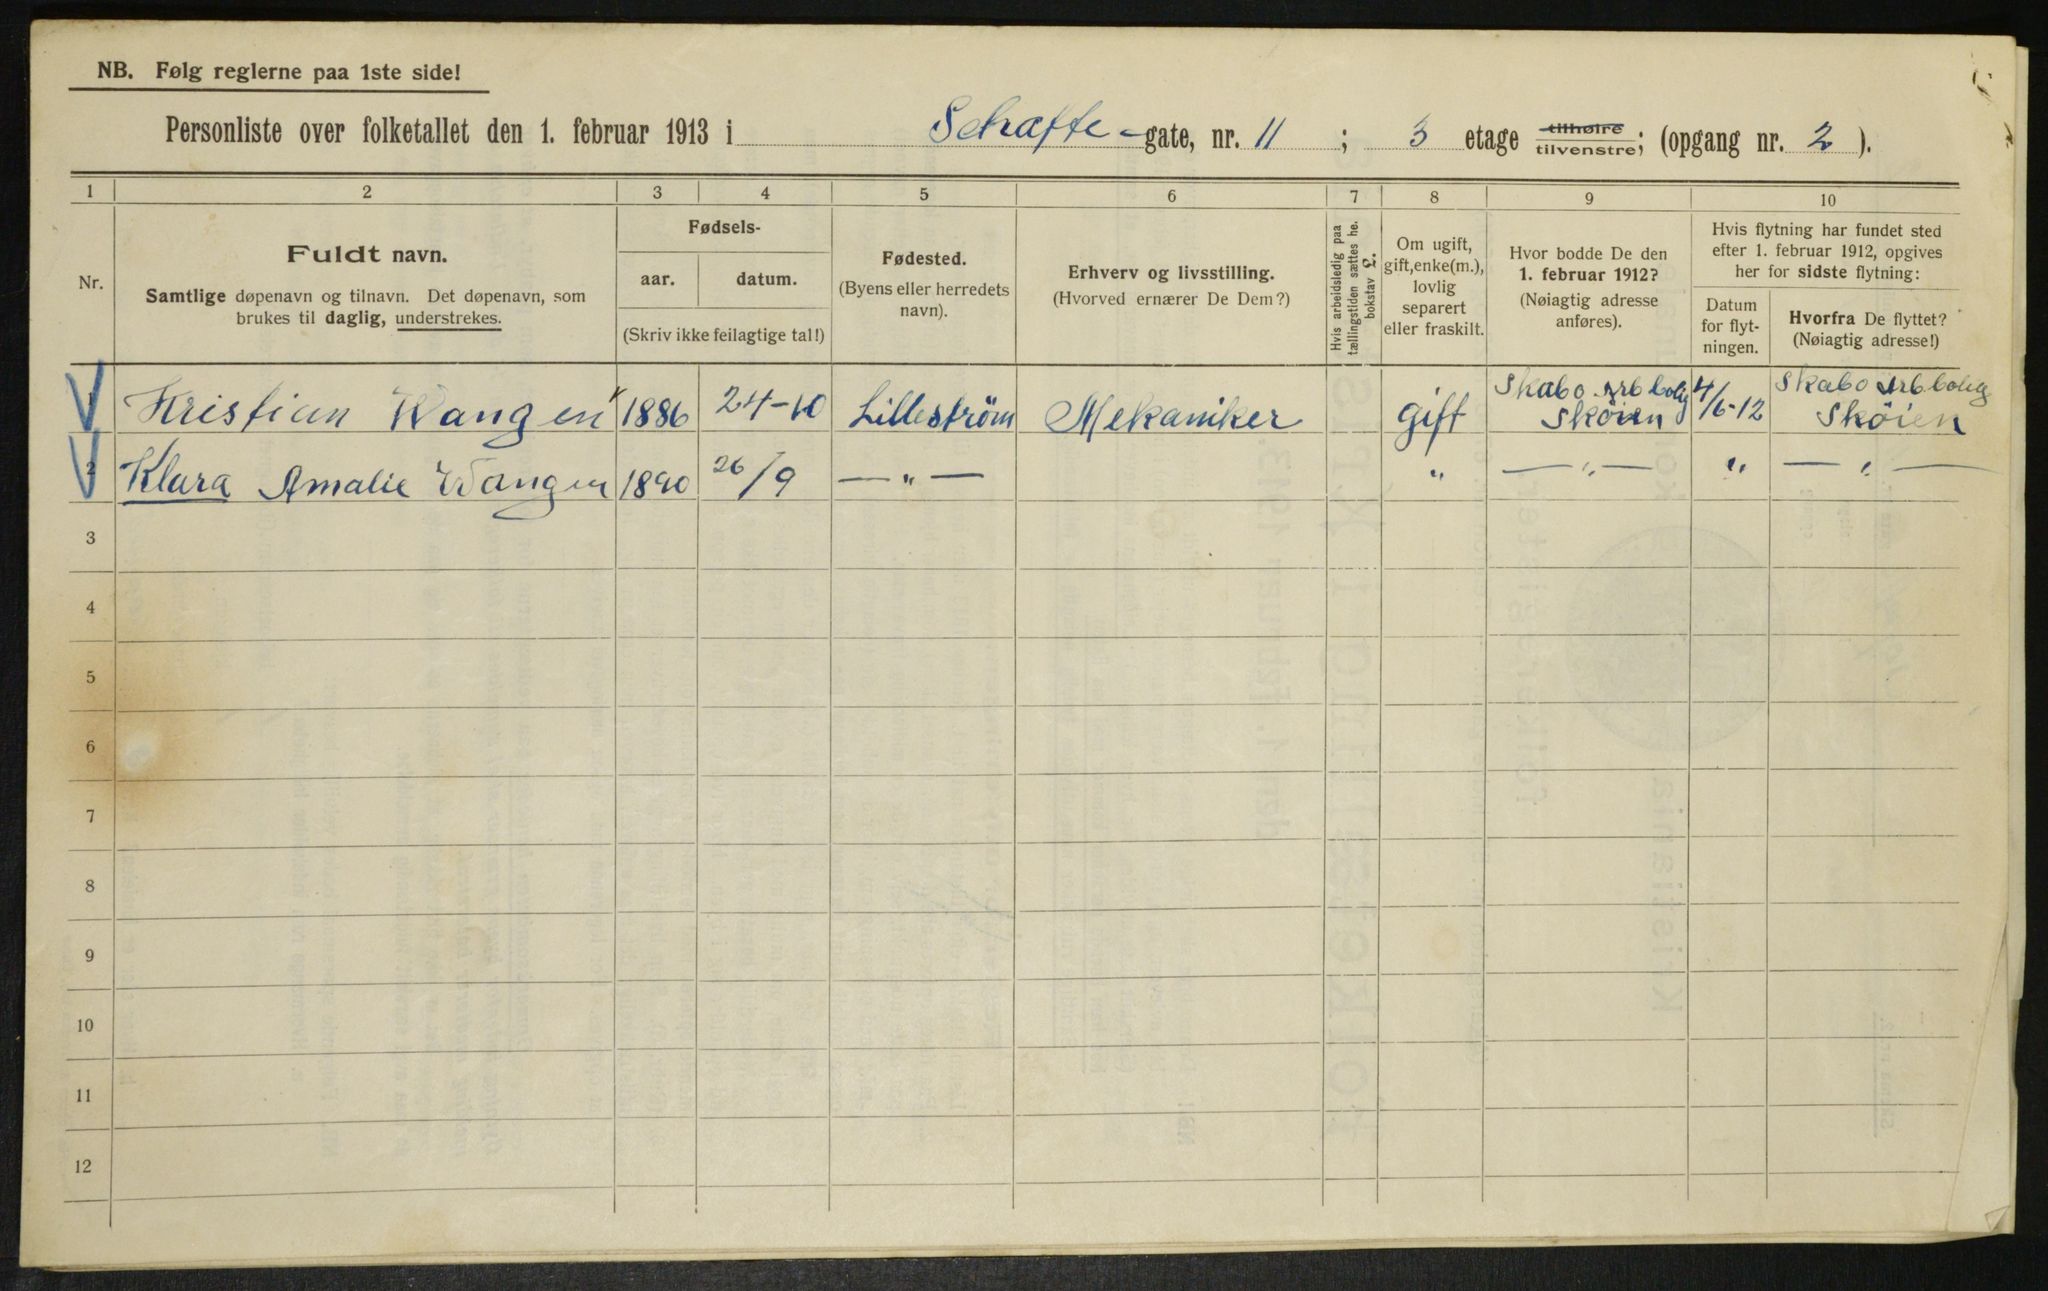 NB. Følg reglerne paa 1ste side!
Personliste over folketallet den 1. februar 1913 i Schaffte-gate, nr. 11 ; 3 etage tilhøire tilvenstre; (opgang nr. 2 ).
1 2 3 4 5 6 7 8 9 10
Nr.
Fuldt navn.
Samtlige døpenavn og tilnavn. Det døpenavn, som
brukes til daglig, understrekes.
Fødsels-
aar. datum.
(Skriv ikke feilagtige tal!)
Fødested.
(Byens eller herredets
navn).
Erhverv og livsstilling.
(Hvorved ernærer De Dem?)
Hvis arbeidsledig paa
tællingstiden sættes he.
bokstav L.
Om ugift,
gift, enke(m.),
lovlig
separert
eller fraskilt.
Hvor bodde De den
1. februar 1912?
(Nøiagtig adresse
anføres).
Hvis flytning har fundet sted
efter 1. februar 1912, opgives
her for sidste flytning:
Datum
for flyt-
ningen.
Hvorfra De flyttet?
(Nøiagtig adresse!)
1 Kristian Wangen 1886 24-10 Lillestrøm Mekaniker gift Skabo Arb bolig Sköien 4/6-12 Skabo Arb bolig Sköien
2 Klara Amalie Wangen 1890 26/9 — " — " — " — " — " —
3
4
5
6
7
8
9
10
11
12